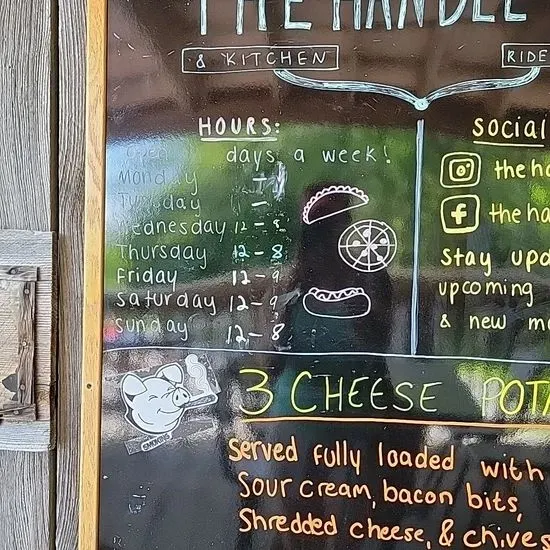 THE HANDLE
& KITCHEN
RIDE
HOURS:
Open days a week!
Monday -
Tuesday -
Wednesday 12-8
Thursday 12-8
Friday 12-9
Saturday 12-9
Sunday 12-8
SOCIAL
the ha
the ha
Stay upd
upcoming
& new m
3 CHEESE POTA
Served fully loaded with
Sour cream, bacon bits,
Shredded cheese, & chives